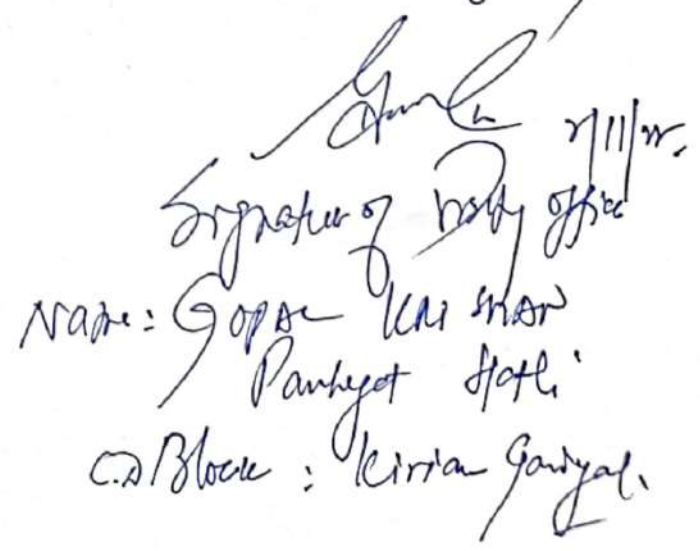 2/11/22.
Signature of Visiting Officer
Name: GOPAL KRISHAN
Panchayat Hatli
C.D Block : Kirian Gandyal.